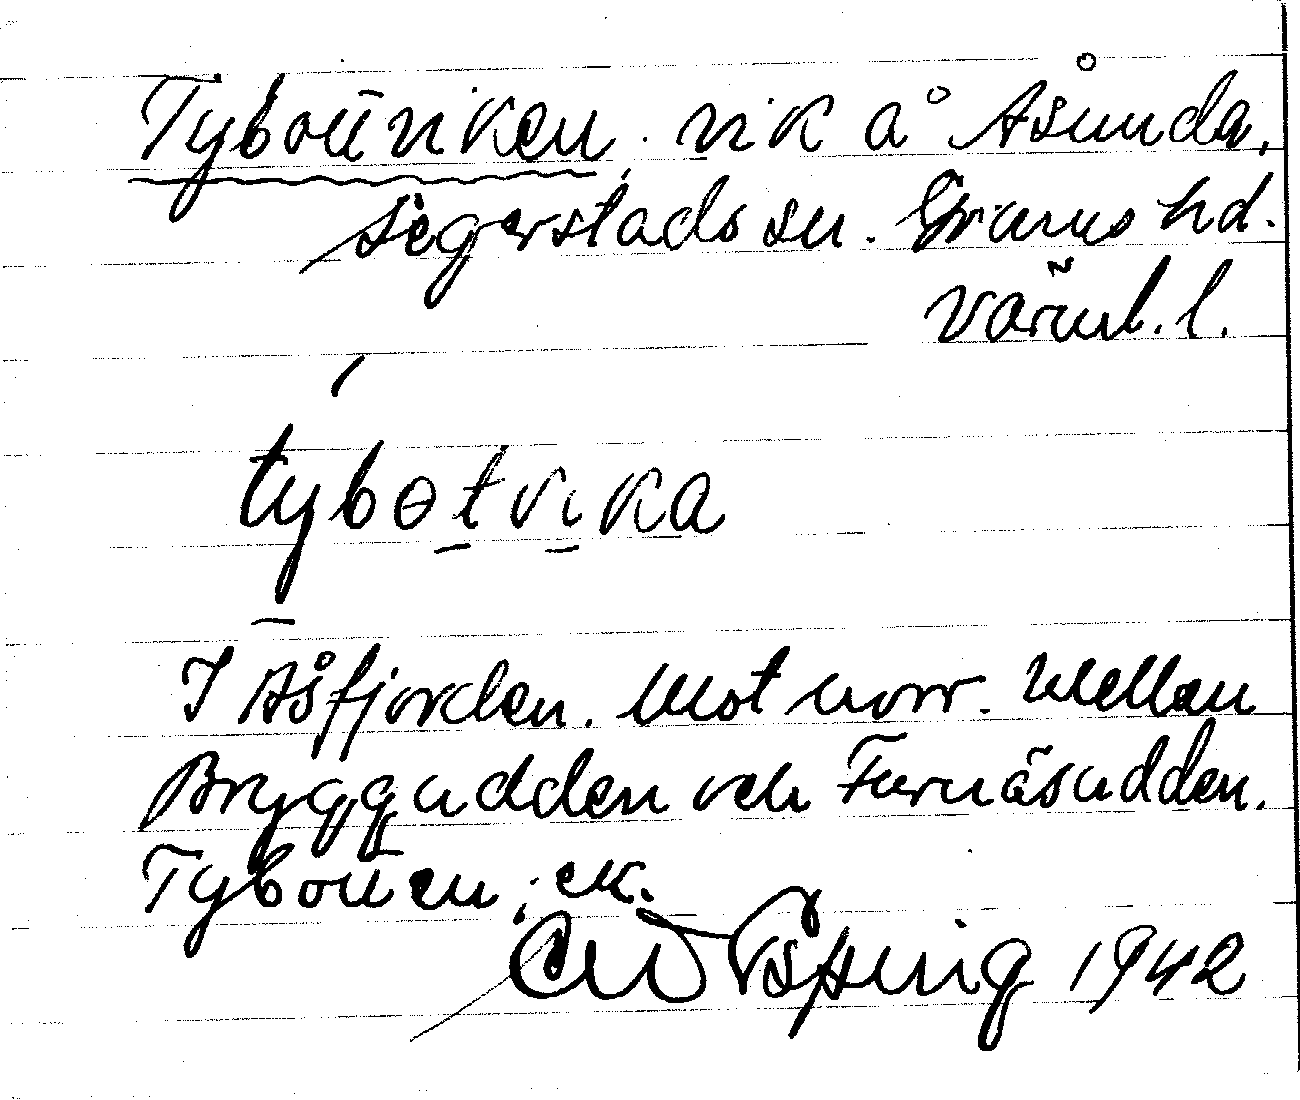 Tybottviken, vik å Åsunda,
Segerstads sn. Grums hd.
Värml. l.
tybøtvika
I Åsfjorden. Mot norr. Mellan
Bryggudden och Furnäsudden.
Tybotten, ek.
1942